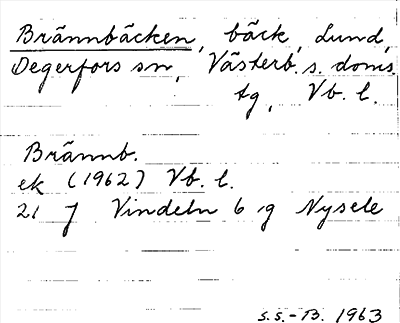 Brännbäcken, bäck, Lund,
Degerfors sn, Västerb. s. doms.
tg, Vb. l.
Brännb.
ek (1962) Vb. l.
21 J Vindeln 6 g Nysele
S.S.-B. 1963